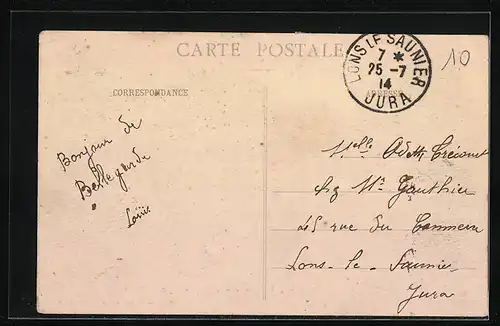 CARTE POSTALE
LONS LE SAUNIER
7 *
25 -7
14
JURA
10
CORRESPONDANCE
ADRESSE
Bonjour de
Bellegarde
Louis
Melle Odette
chez Mr Gauthier
45 rue du Commerce
Lons-le-Saunier
Jura